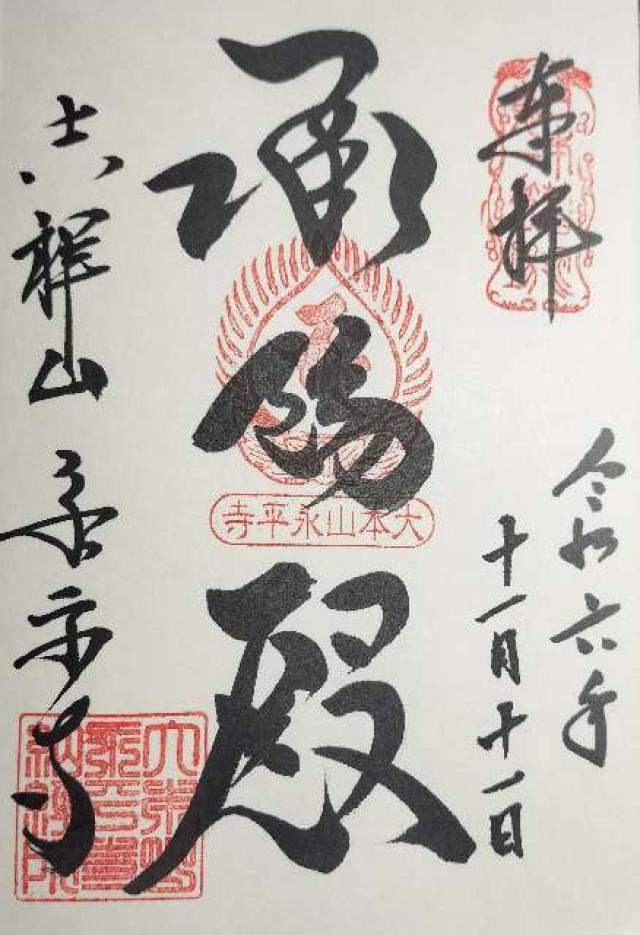 奉拝
令和六年
十一月十一日
承陽殿
大本山永平寺
吉祥山永平寺